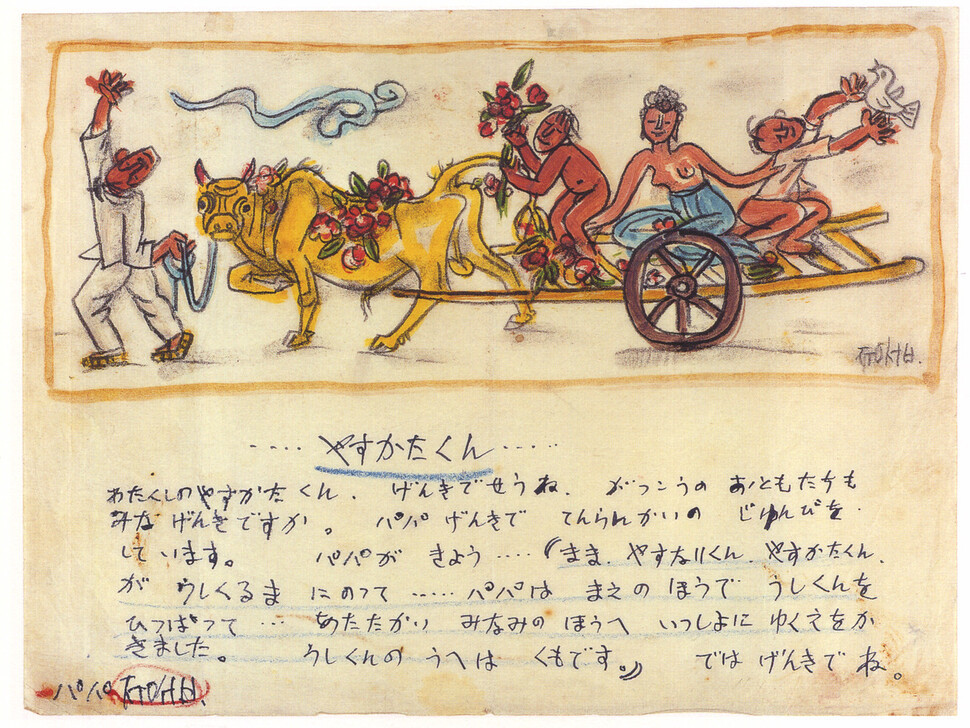 ㅈㅜㅇㅅㅓㅂ
‥‥やすかたくん‥‥‥
わたくしのやすかたくん. げんきでせうね. がつこうの おともたちも
みな げんきですか。 パパ げんきで てんらんかいの じゆんびを.
しています。 パパが きよう‥‥(まま. やすなりくん. やすかたくん.
が うしくるまにのつて ‥‥‥パパは まえの ほうで うしくんを
ひつぱつて … あたたかい みなみの ほうへ いつしよに ゆくえをか
きました。 うしくんの うへは くもです。) では げんきで ね。
パパ ㅈㅜㅇㅅㅓㅂ.